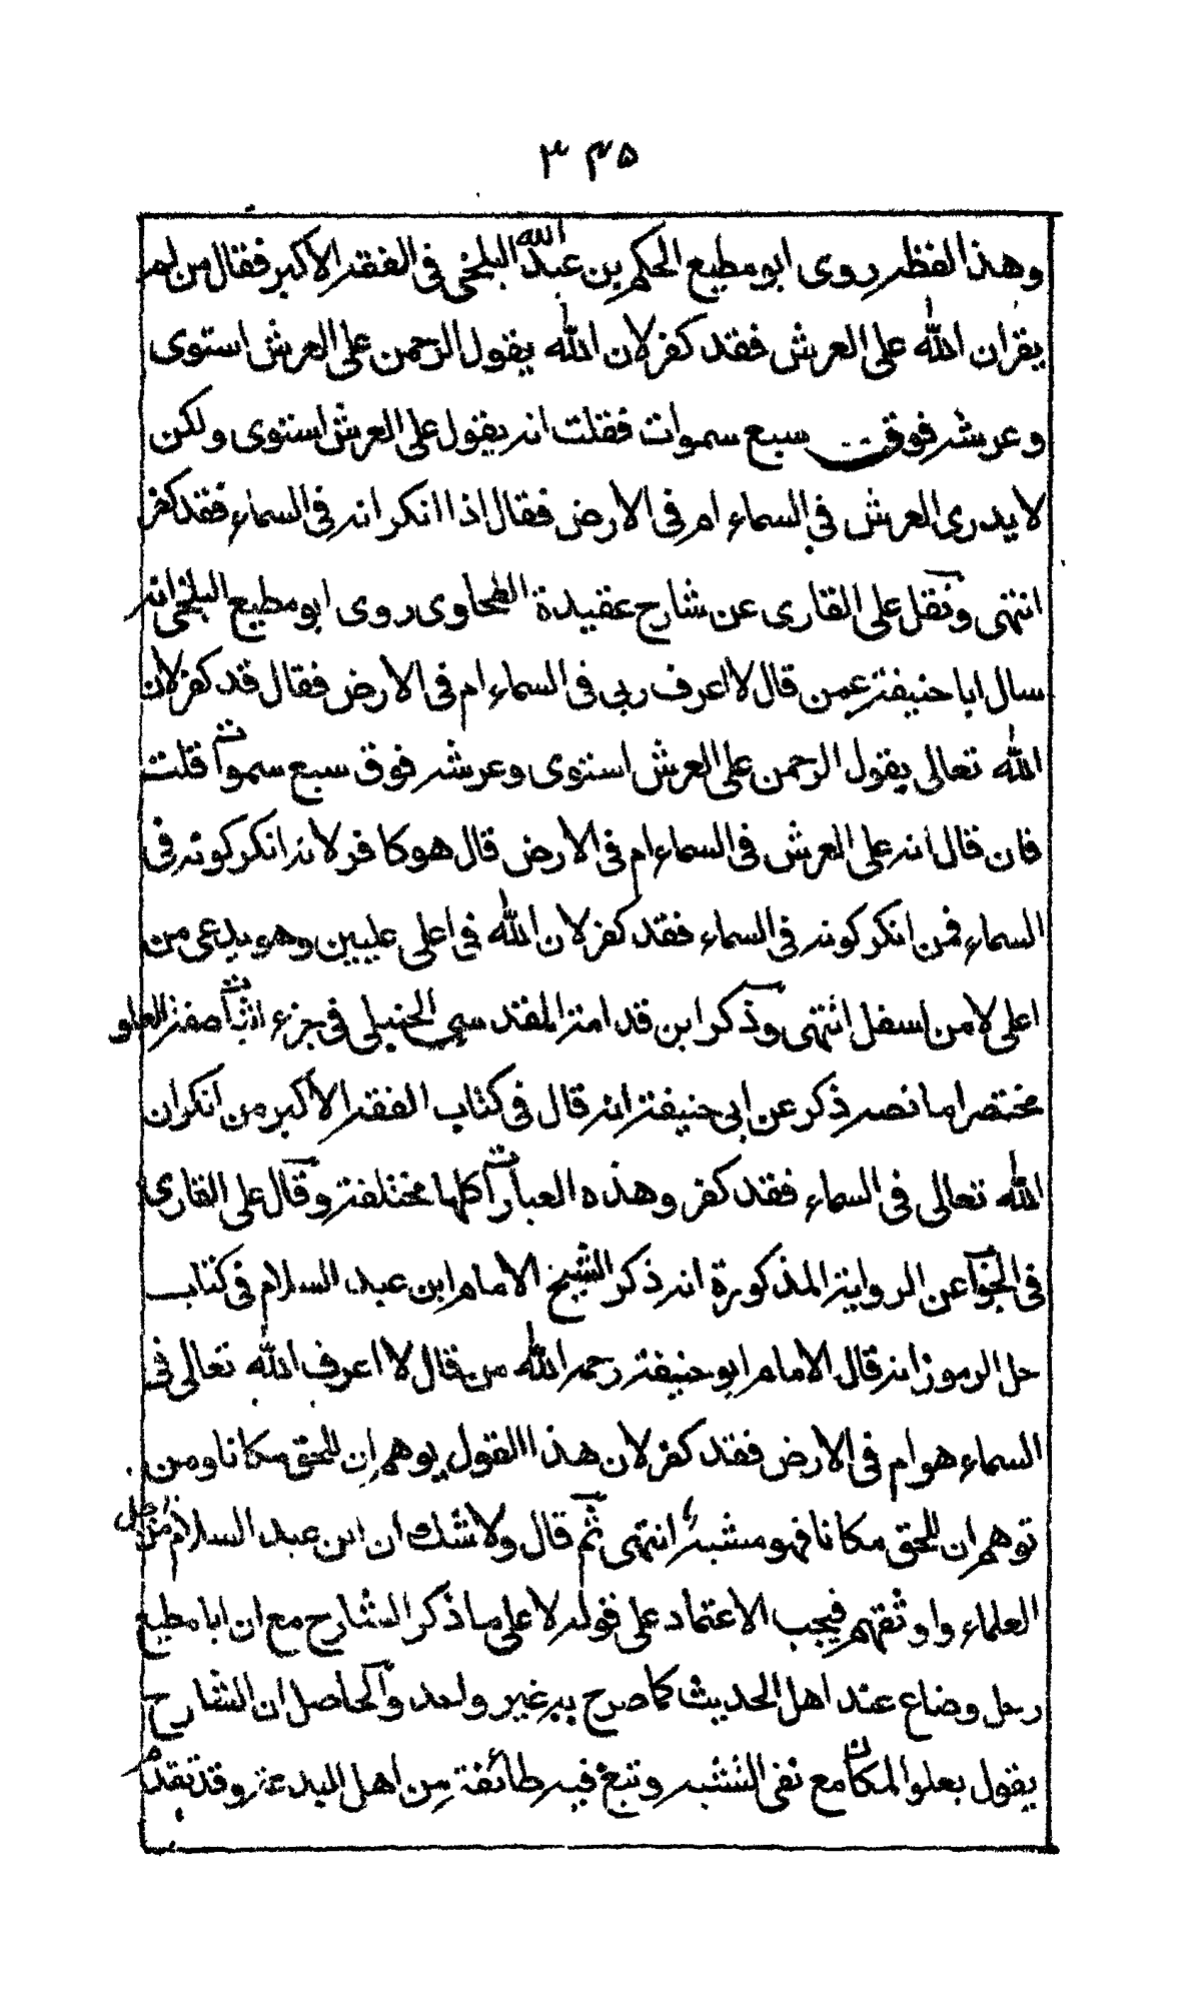 ۳۴۵
وهذا لفظه روى ابو مطيع الحكم بن عبد الله البلخي في الفقه الاكبر فقال من لم
يقر ان الله على العرش فقد كفر لان الله يقول الرحمن على العرش استوى
وعرشه فوق سبع سموات فقلت انه يقول على العرش استوى ولكن
لا يدرى العرش في السماء ام في الارض فقال اذا انكر انه في السماء فقد كفر
انتهى ونقل على القارى عن شارح عقيدة الطحاوى روى ابو مطيع البلخي انه
سال ابا حنيفة عمن قال لا اعرف ربى في السماء ام في الارض فقال قد كفر لان
الله تعالى يقول الرحمن على العرش استوى وعرشه فوق سبع سموات قلت
فان قال انه على العرش في السماء ام في الارض قال هو كافر لانه انكر كونه في
السماء فمن انكر كونه في السماء فقد كفر لان الله في اعلى عليين وهو يدعى من
اعلى لا من اسفل انتهى وذكر ابن قدامة المقدسي الحنبلي في جزء اثبات صفة العلو
مختصرا ما نصه ذكر عن ابى حنيفة انه قال في كتاب الفقه الاكبر من انكر ان
الله تعالى في السماء فقد كفر وهذه العبارات كلها مختلفة وقال على القارى
في الجواب عن الرواية المذكورة انه ذكر الشيخ الامام ابن عبد السلام في كتاب
حل الرموز انه قال الامام ابو حنيفة رحمه الله من قال لا اعرف الله تعالى في
السماء هو ام في الارض فقد كفر لان هذا القول يوهم ان للحق مكانا ومن
توهم ان للحق مكانا فهو مشبه انتهى ثم قال ولا شك ان ابن عبد السلام من اجل
العلماء واوثقهم فيجب الاعتماد على قوله لا على ما ذكر الشارح مع ان ابا مطيع
رجل وضاع عند اهل الحديث كما صرح به غير واحد والحاصل ان الشارح
يقول بعلو المكان مع نفى التشبه وتبع فيه طائفة من اهل البدعة وقد تقدم